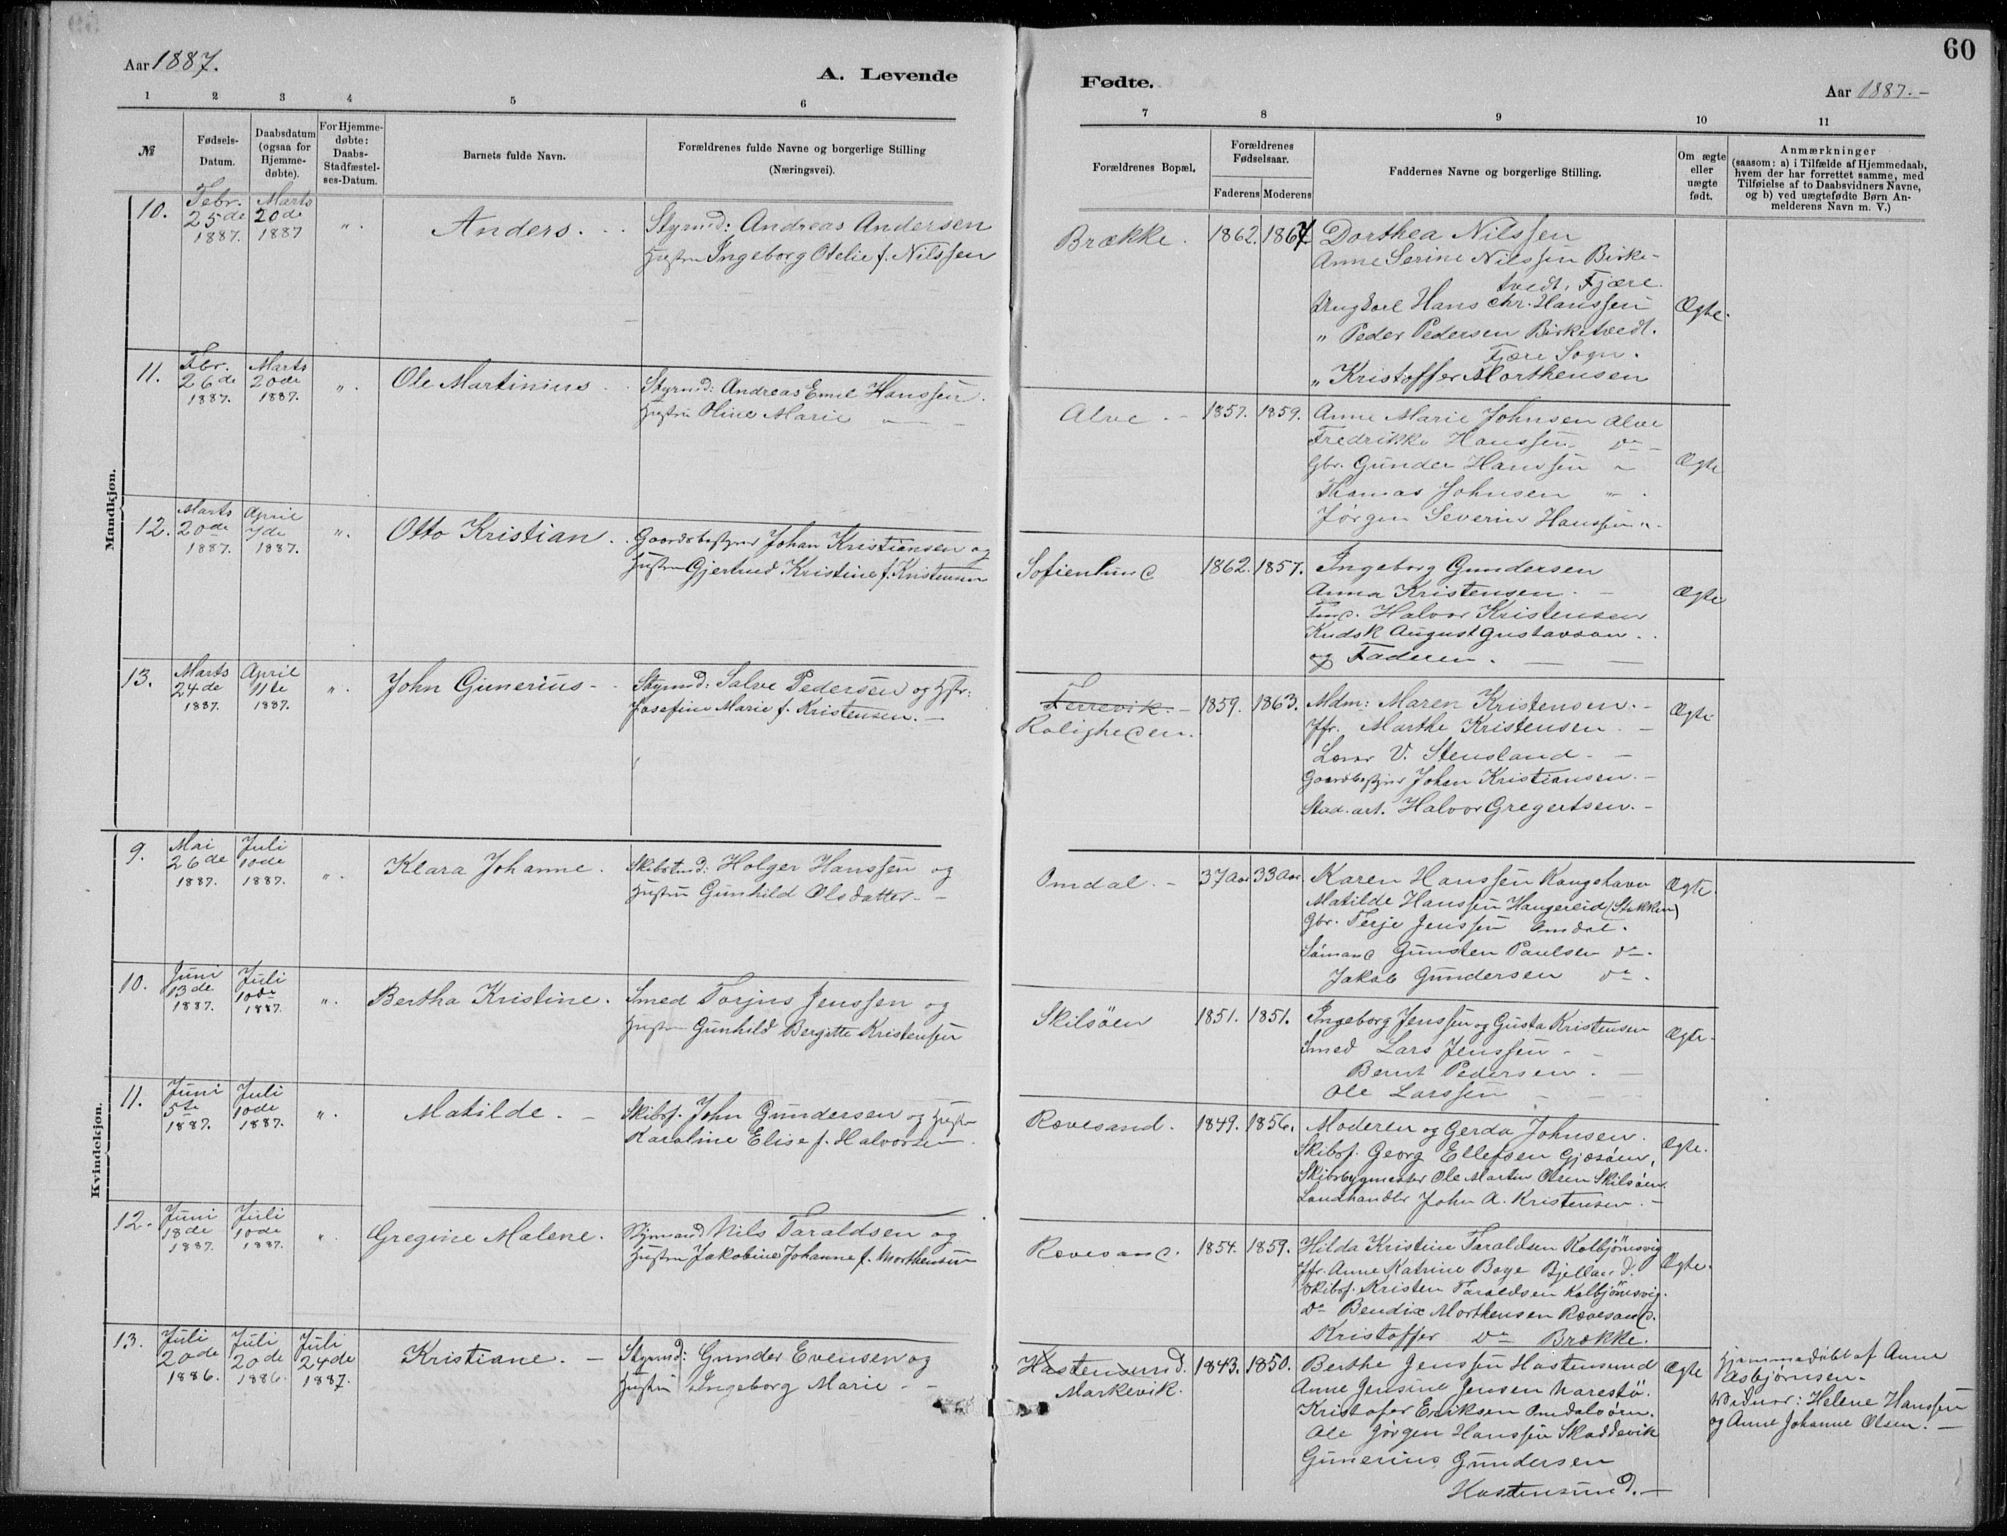 Aar 1887.
A. Levende
1 2 3 4 5 6
№
Fødsels-
Datum.
Daabsdatum
(ogsaa for
Hjemme-
døbte).
For Hjemme-
døbte:
Daabs-
Stadfæstel-
ses-Datum.
Barnets fulde Navn.
Forældrenes fulde Navne og borgerlige Stilling
(Næringsvei).
Mandkjøn.
10.
Febr.
25de
1887.
Marts
20de
1887
".
Anders.
Styrmd: Andreas Andersen
Hustru Ingeborg Otelie f. Nilssen
11.
Febr.
26de
1887.
Marts
20de
1887.
".
Ole Martinius
Styrmd: Andreas Emil Hanssen.
Hustru Oline Marie " —
12.
Marts
20de
1887.
April
7de
1887.
".
Otto Kristian.
Gaardsbestyrer Johan Kristiansen og
Hustru Gjertrud Kristine f. Kristensen
13.
Marts
24de
1887.
April
11te
1887.
".
John Gunerius -
Styrmd: Salve Pedersen og Hstr:
Josefine Marie f. Kristensen. -
Kvindekjøn.
9.
Mai
26de
1887.
Juli
10de
1887.
".
Klara Johanne.
Skibstmd: Holger Hanssen og
Hustru Gunhild Olsdatter -
10.
Juni
13de
1887.
Juli
10de
1887.
".
Bertha Kristine.
Smed Torjus Jenssen og
Hustru Gunhild Bergitte Kristensen
11.
Juni
5te
1887.
Juli
10de
1887.
".
Matilde. -
Skibsf. John Gundersen og Hustru
Karoline Elise f. Halvorsen.
12.
Juni
18de
1887.
Juli
10de
1887.
".
Gregine Malene.
Styrmand Nils Taraldsen og
Hustru Jakobine Johanne f. Morthensen
13.
Juli
20de
1886.
Juli
20de
1886.
Juli
24de
1887.
Kristiane. -
Styrmd: Gunder Evensen og
Hustru Ingeborg Marie. -
60
Fødte.
Aar 1887.-
7 8 9 10 11
Forældrenes Bopæl.
Forældrenes
Fødselsaar.
Faderens Moderens
Faddernes Navne og borgerlige Stilling.
Om ægte
eller
uægte
født.
Anmærkninger
(saasom: a) i Tilfælde af Hjemmedaab,
hvem der har forrettet samme, med
Tilføielse af to Daabsvidners Navne,
og b) ved uægtefødte Børn An-
melderens Navn m. V.)
Brække. 1862. 1867
Dorthea Nilssen
Anne Serine Nilssen Birke-
tvedt, Fjære.
Ungkarl Hans Chr. Hanssen
" Peder Pedersen Birketvedt.
Fjære Sogn.
" Kristoffer Morthensen
Ægte.
Alve - 1857. 1859.
Anne Marie Johnsen Alve
Fredrikke Hanssen do -
Gbr. Gunder Hanssen "
Thomas Johnsen " .
Jørgen Severin Hanssen ".
Ægte
Sofienlund 1862. 1857.
Ingeborg Gundersen
Anna Kristensen. -
Halvor Kristensen
Kudsk August Gustavson.
og Faderen. —
Ægte
Terrevik. -
Roligheden. 1859. 1863.
Mdm: Maren Kristensen. -
Jfr. Marthe Kristensen. -
Lærer V. Stensland. -
Gaardbestyrer Johan Kristiansen. -
Stud. art. Halvor Gregertsen. -
Ægte
Omdal. - 37 Aar 33 Aar
Karen Hanssen Kongshavn
Matilde Hanssen Haugereid (Stokken)
Gbr. Terje Jenssen Omdal.
Sømand Gunsten Paulsen do.
Jakob Gundersen do.
Ægte.
Skilsöen 1851. 1851.
Ingeborg Jenssen og Gusta Kristensen
Smed Lars Jenssen -
Bernt Pedersen. -
Ole Larssen -
Ægte.
Rævesand. 1849. 1856.
Moderen og Gerda Johnsen.
Skibsf. Georg Ellefsen Gjøsöen,
Skibsbygmester Ole Martin Olsen Skilsöen.
Landhandler John A. Kristensen. -
Ægte.
Rævesand. 1854. 1859.
Hilda Kristine Taraldsen Kolbjörnsvig
Jfr. Anne Katrine Boye Bjelland.
Skibsf. Kristen Taraldsen Kolbjörnsvig.
do Bendix Morthensen Rævesand.
Kristoffer do Brække.
Ægte.
Hastensund.
Markevik. 1843. 1850.
Berthe Jenssen Hastensund
Anne Jensine Jensen Narestö.
Kristofer Eriksen Omdalsörn.
Ole Jörgen Hanssen Skaddevik
Gunerius Gundersen
Hastensund. —
Ægte
Hjemmedøbt af Anne
Asbjörnsen.
Vidner: Helene Hanssen
og Anne Johanne Olsen. —